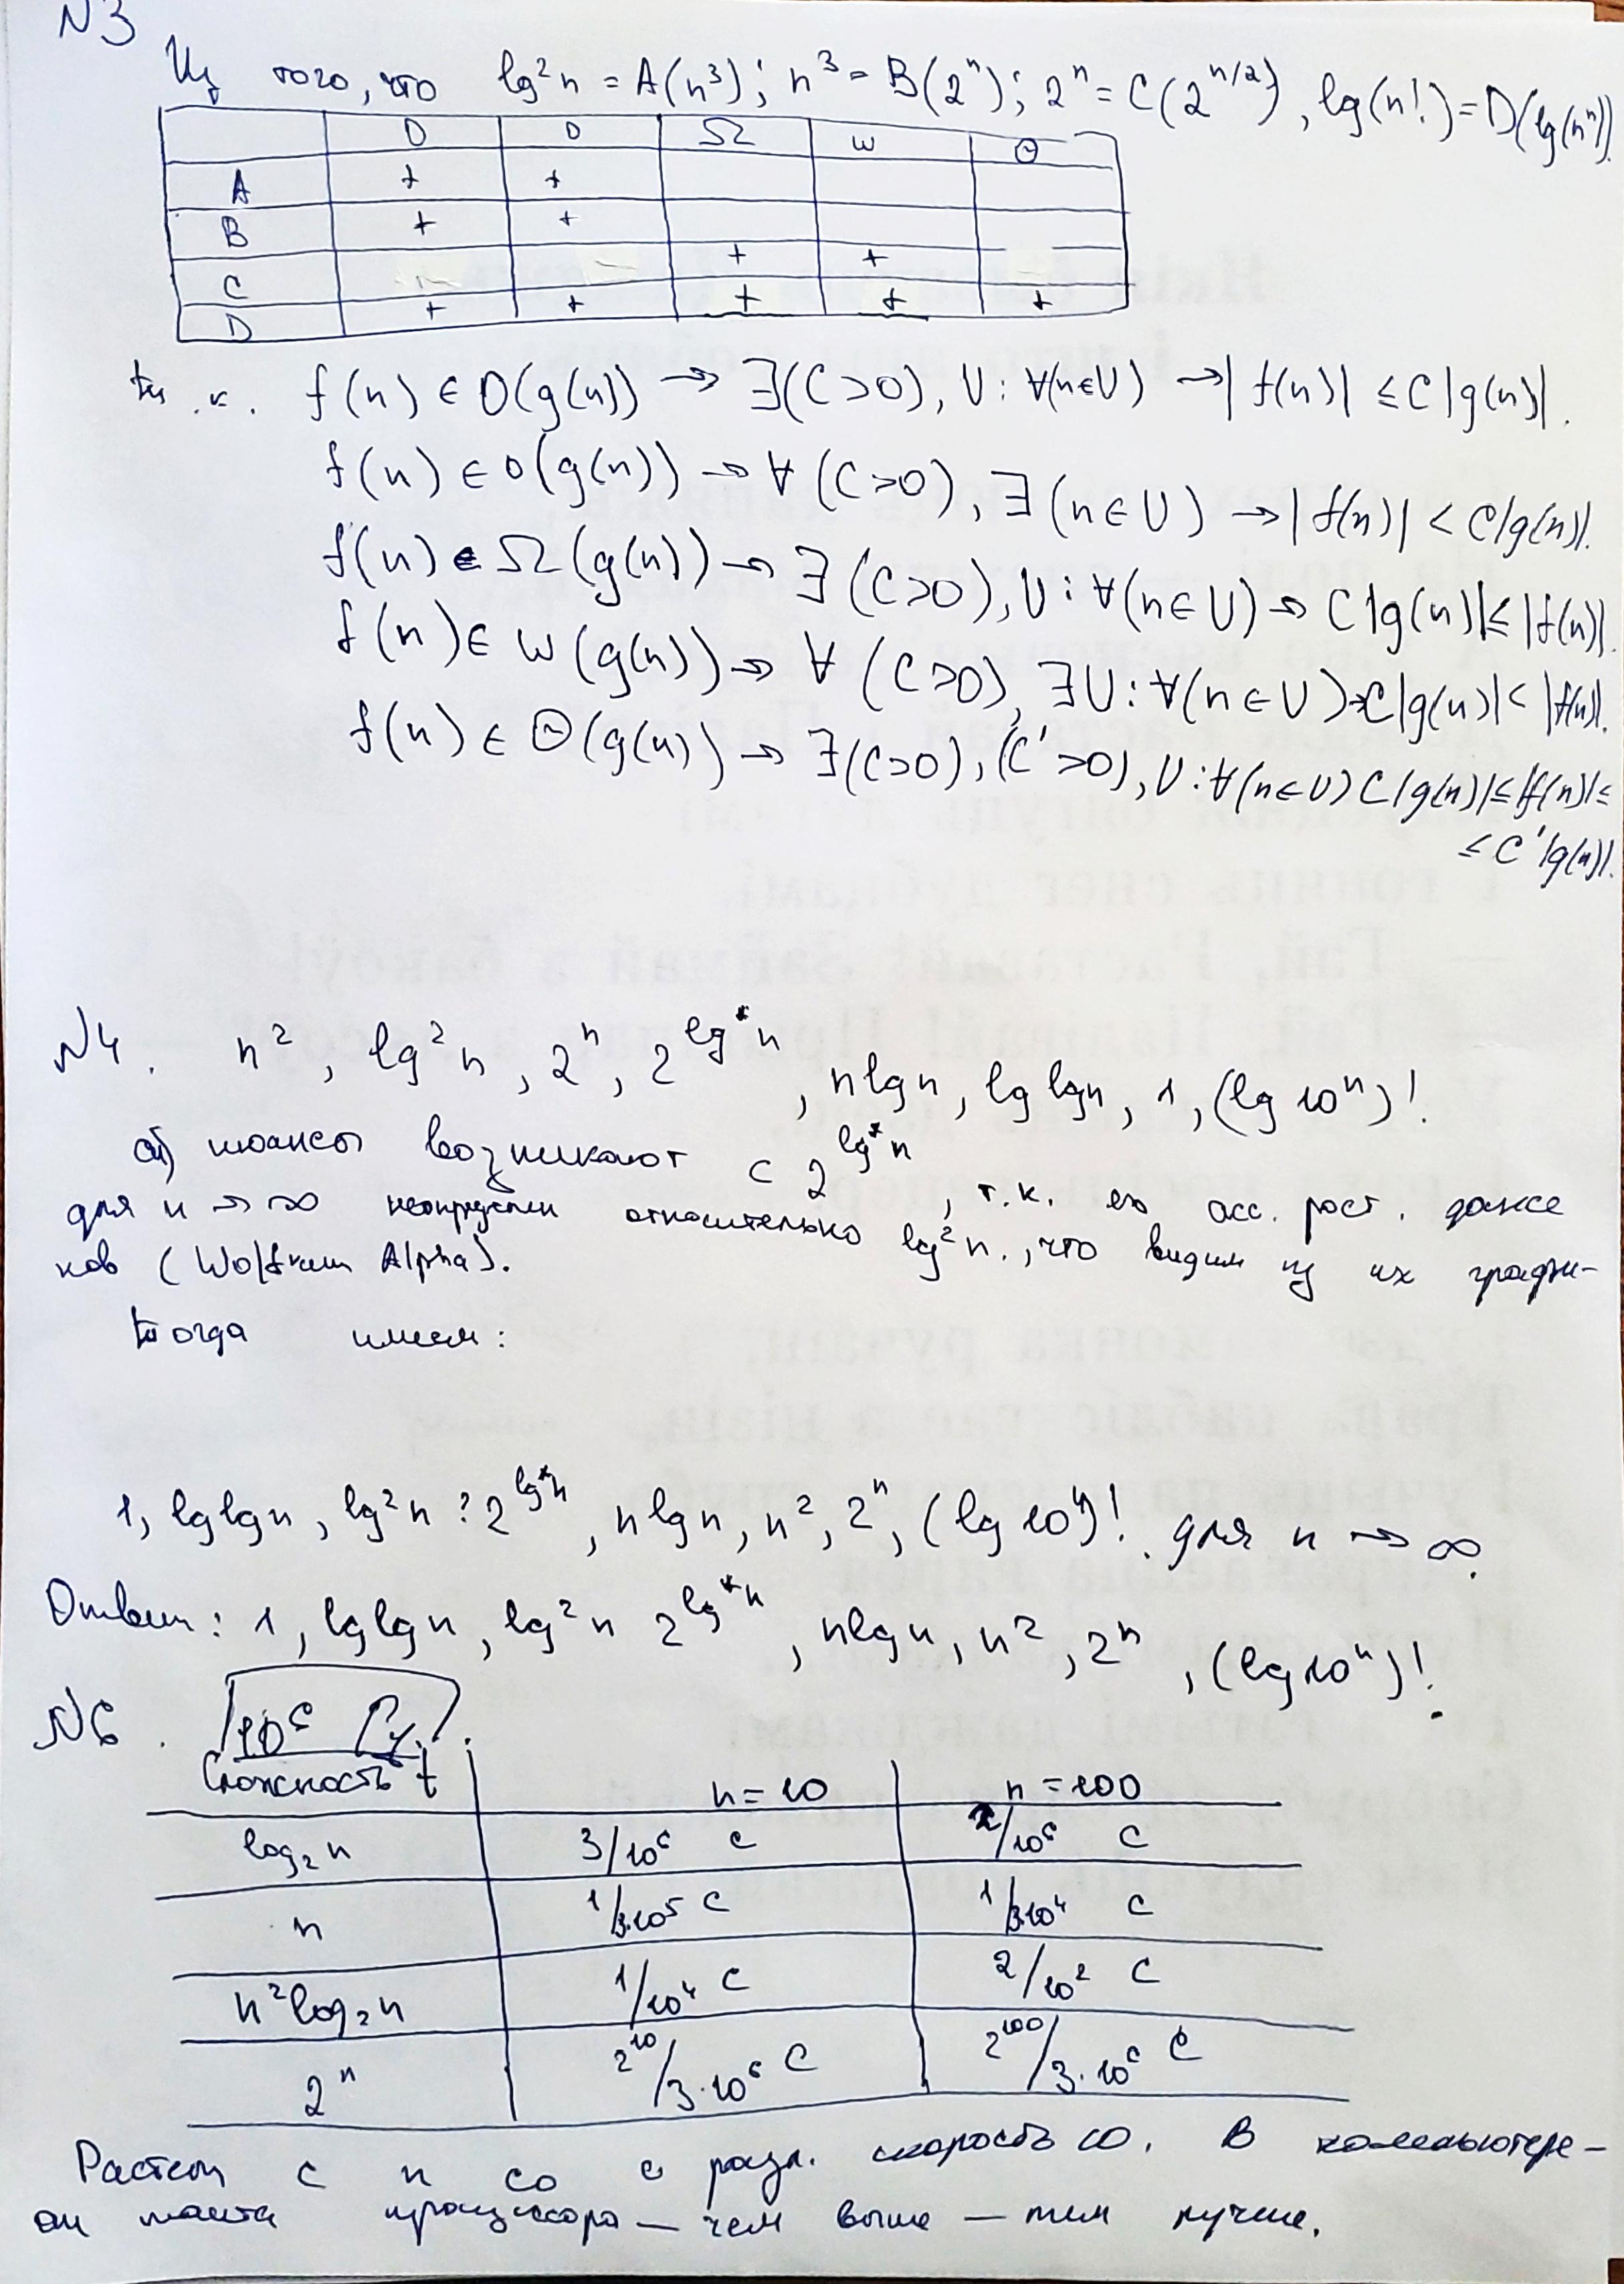 N3
Из того, что lg²n = A(n³); n³ = B(2ⁿ); 2ⁿ = C(2^{n/2}), lg(n!) = D(lg(nⁿ)).
O o Ω ω Θ
A + +
B + +
C + +
D + + + + +
т. к. f(n) ∈ O(g(n)) → ∃(C>0), U : ∀(n∈U) → |f(n)| ≤ C|g(n)|.
f(n) ∈ o(g(n)) → ∀(C>0), ∃(n∈U) → |f(n)| < C|g(n)|.
f(n) ∈ Ω(g(n)) → ∃(C>0), U : ∀(n∈U) → C|g(n)| ≤ |f(n)|.
f(n) ∈ ω(g(n)) → ∀(C>0), ∃U : ∀(n∈U) → C|g(n)| < |f(n)|.
f(n) ∈ Θ(g(n)) → ∃(C>0), (C'>0), U : ∀(n∈U) C|g(n)| ≤ |f(n)| ≤
≤ C'|g(n)|.
N4. n², lg²n, 2ⁿ, 2^{lg*n}, n lg n, lg lg n, 1, (lg 10ⁿ)!
а) нюансы возникают с 2^{lg*n}, т.к. его асс. рост. даже
для n → ∞ относительно lg²n., что видим из их графи-
ков (Wolfram Alpha).
Тогда имеем:
1, lg lg n, lg²n ? 2^{lg*n}, n lg n, n², 2ⁿ, (lg 10ⁿ)! для n → ∞.
Ответ: 1, lg lg n, lg²n 2^{lg*n}, n lg n, n², 2ⁿ, (lg 10ⁿ)!.
N6. 10⁶ Гц.
Сложность t n = 10 n = 100
log₂n 3/10⁶ с /10⁶ с
n 1/3·10⁵ с 1/3·10⁴ с
n²log₂n 1/10⁴ с 2/10² с
2ⁿ 2¹⁰/3·10⁶ с 2¹⁰⁰/3·10⁶ с
Растет с n со с разл. скоростью. В компьютере-
процессора — чем выше — тем лучше.